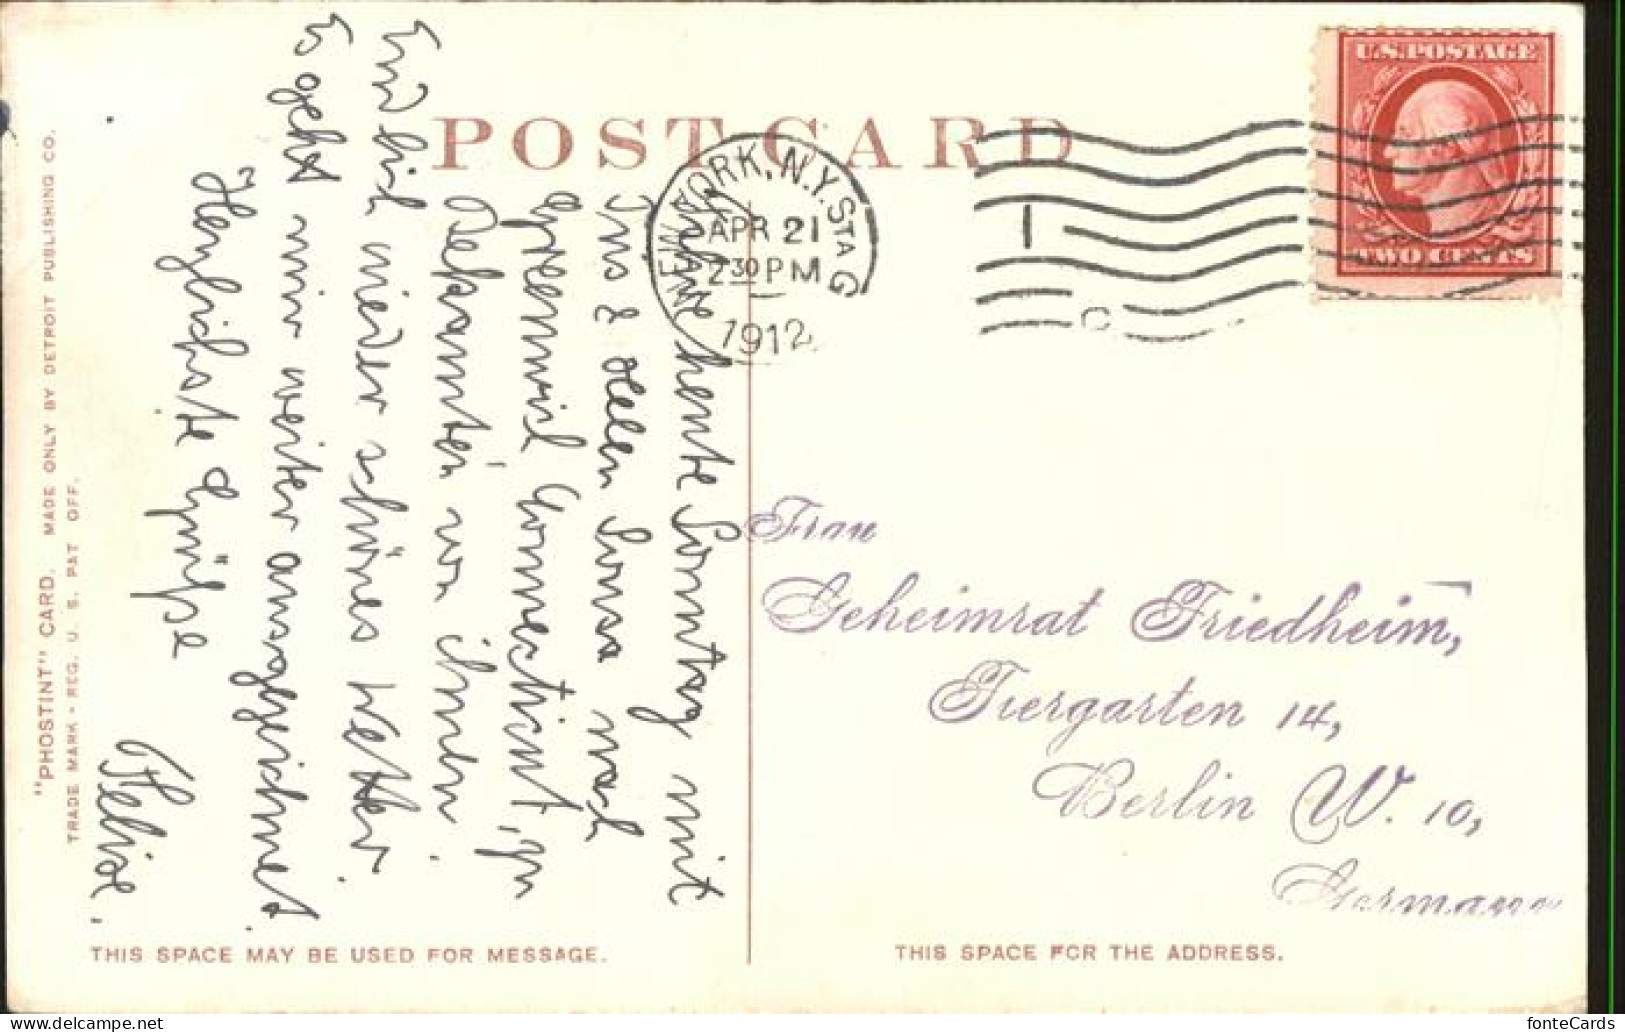 POST CARD
U.S. POSTAGE
TWO CENTS
NEW YORK, N.Y. STA G
APR 21
2 30 PM
1912
1
"PHOSTINT" CARD. MADE ONLY BY DETROIT PUBLISHING CO.
TRADE MARK - REG. U. S. PAT OFF.
Fahre heute Sonntag mit
Ins & Ellen Sonsa nach
Greenwich Connecticut, zu
Bekannten von ihnen.
Endlich wieder schönes Wetter.
Es geht mir weiter ausgezeichnet.
Herzlichste Grüsse
Frau
Geheimrat Friedheim,
Tiergarten 14,
Berlin W. 10,
Germany
THIS SPACE MAY BE USED FOR MESSAGE.
THIS SPACE FOR THE ADDRESS.
fonteCards
www.delcampe.net